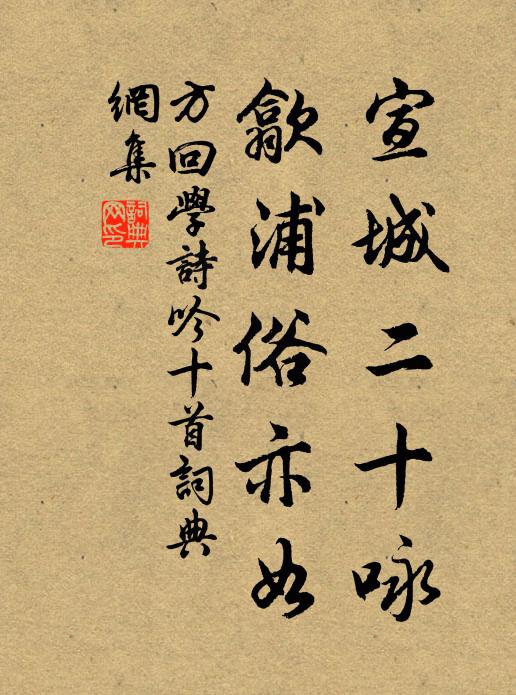 宣城二十咏
歙浦俗亦如
方回學詩吟十首詞典
網集
詞典網印